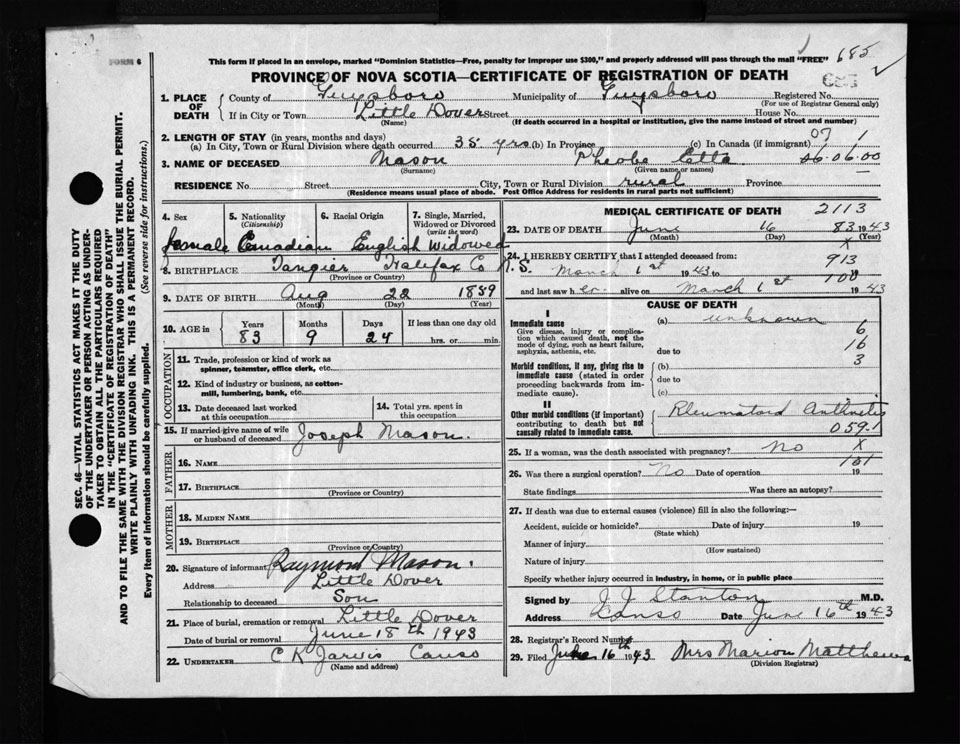 FORM 6
This form if placed in an envelope, marked "Dominion Statistics—Free, penalty for improper use $300," and properly addressed will pass through the mail "FREE" 685
PROVINCE OF NOVA SCOTIA—CERTIFICATE OF REGISTRATION OF DEATH
1. PLACE OF DEATH
County of Guysboro Municipality of Guysboro Registered No.
(For use of Registrar General only)
If in City or Town Little Dover Street House No.
(Name) (If death occurred in a hospital or institution, give the name instead of street and number)
2. LENGTH OF STAY (in years, months and days) 07 1
(a) In City, Town or Rural Division where death occurred 35 yrs (b) In Province (c) In Canada (if immigrant)
3. NAME OF DECEASED Mason Pheobe Etta 06.06.00
(Surname) (Given name or names)
RESIDENCE No. Street City, Town or Rural Division rural Province
(Residence means usual place of abode. Post Office Address for residents in rural parts not sufficient)
4. Sex 5. Nationality (Citizenship) 6. Racial Origin 7. Single, Married, Widowed or Divorced (write the word)
female Canadian English Widowed
8. BIRTHPLACE Tangier Halifax Co N.S.
(Province or Country)
9. DATE OF BIRTH Aug 22 1859
(Month) (Day) (Year)
10. AGE in Years Months Days If less than one day old
83 9 24 hrs. or min.
OCCUPATION
11. Trade, profession or kind of work as spinner, teamster, office clerk, etc.
12. Kind of industry or business, as cotton-mill, lumbering, bank, etc.
13. Date deceased last worked at this occupation
14. Total yrs. spent in this occupation
15. If married give name of wife or husband of deceased Joseph Mason.
FATHER
16. NAME
17. BIRTHPLACE
(Province or Country)
MOTHER
18. MAIDEN NAME
19. BIRTHPLACE
(Province or Country)
20. Signature of informant Raymond Mason.
Address Little Dover
Relationship to deceased Son
21. Place of burial, cremation or removal Little Dover
Date of burial or removal June 18th 1943
22. UNDERTAKER C K Jarvis Canso
(Name and address)
MEDICAL CERTIFICATE OF DEATH 2113
23. DATE OF DEATH June 16 83 1943
(Month) (Day) (Year)
X
24. I HEREBY CERTIFY that I attended deceased from: 913
March 1st 1943 to 100
and last saw her alive on March 1st 1943
CAUSE OF DEATH
I
Immediate cause (a) unknown
Give disease, injury or complication which caused death, not the mode of dying, such as heart failure, asphyxia, asthenia, etc.
6
16
due to 3
Morbid conditions, if any, giving rise to immediate cause (stated in order proceeding backwards from immediate cause).
(b)
due to
(c)
II
Other morbid conditions (if important) contributing to death but not causally related to immediate cause.
Rheumatoid Arthritis
059.1
25. If a woman, was the death associated with pregnancy? No X
101
26. Was there a surgical operation? No Date of operation 19
State findings Was there an autopsy?
27. If death was due to external causes (violence) fill in also the following:—
Accident, suicide or homicide? Date of injury 19
(State which)
Manner of injury
(How sustained)
Nature of injury
Specify whether injury occurred in industry, in home, or in public place
Signed by J J Stanton M.D.
Address Canso Date June 16th 1943
28. Registrar's Record Number
29. Filed June 16th 1943 Mrs Marion Matthews
(Division Registrar)
SEC. 46—VITAL STATISTICS ACT MAKES IT THE DUTY
OF THE UNDERTAKER OR PERSON ACTING AS UNDER-
TAKER TO OBTAIN ALL THE PARTICULARS REQUIRED
IN THE "CERTIFICATE OF REGISTRATION OF DEATH"
AND TO FILE THE SAME WITH THE DIVISION REGISTRAR WHO SHALL ISSUE THE BURIAL PERMIT.
WRITE PLAINLY WITH UNFADING INK. THIS IS A PERMANENT RECORD.
Every item of information should be carefully supplied. (See reverse side for instructions.)